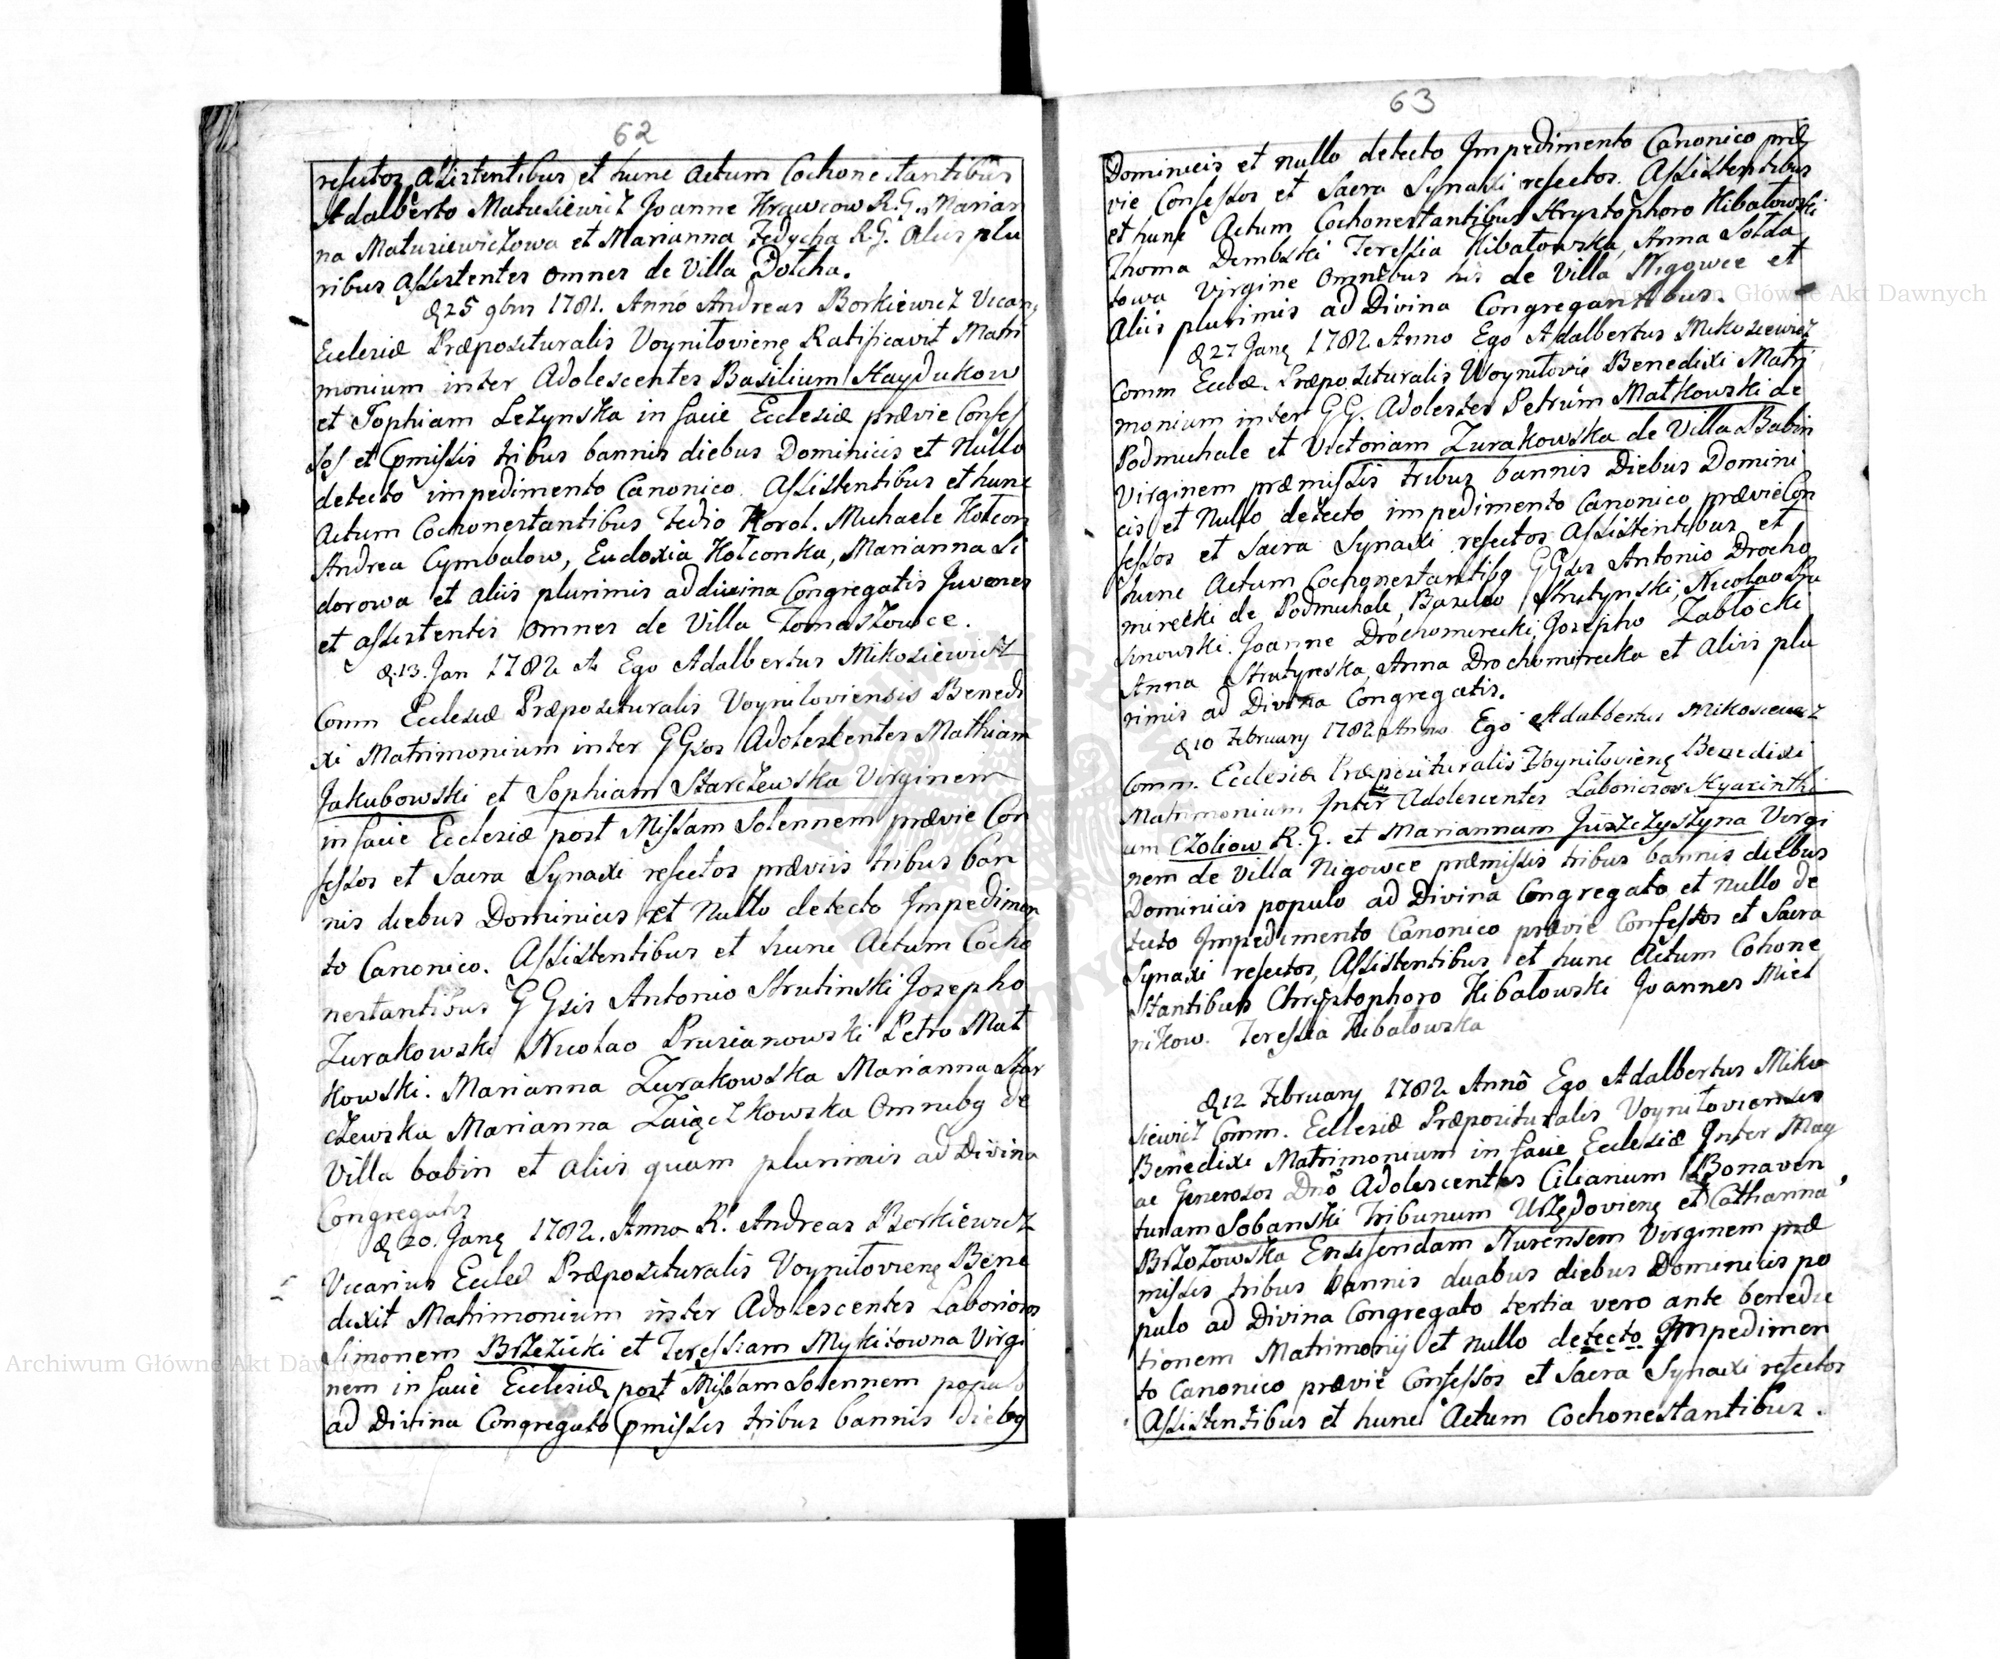 62
refectos Assistentibus et hunc Actum Cochonestantibus
Adalberto Matusiewicz Joanne Krawcow R.G. Marian
na Matusiewiczowa et Marianna Fedycha R.G. Aliis plu
ribus Assistentes omnes de Villa Dołcha.
D 25 9bris 1781. Anno Andreas Borkiewicz Vicari
Ecclesiæ Præpositturalis Voyniłovienę Ratificavit Matri
monium inter Adolescentes Basilium Haydukow
et Sophiam Lezynska in facie Ecclesiæ prævie Confes
sos et pmissis tribus bannis diebus Dominicis et Nullo
detecto impedimento Canonico Assistentibus et hunc
Actum Cochonestantibus Fedio Korol. Michaele Kołcon
Andrea Cymbalow, Eudoxia Kołconka, Marianna Si
dorowa et aliis plurimis ad divina Congregatis Juvenes
et assistentes omnes de Villa Tomaszowce.
D. 13. Jan 1782 A Ego Adalbertus Mikosiewicz
Comm Ecclesiæ Præposituralis Voyniłoviensis Benedi
xi Matrimonium inter GGsos Adolescentes Mathiam
Jakubowski et Sophiam Starczewska Virginem
in facie Ecclesiæ post Missam Solennem prævie Con
fessos et Sacra Synaxi refectos præviis tribus ban
nis diebus Dominicis et Nullo detecto Impedimen
to Canonico. Assistentibus et hunc Actum Cocho
nestantibus GGsis Antonio Strutinski Josepho
Zurakowski Nicolao Prusianowski Petro Mat
kowski. Marianna Zurakowska Marianna Star
czewska Marianna Zaięczkowska Omnibq de
Villa babin et Aliis quam plurimis ad Divina
Congregatis
D 20. Janę 1782. Anno R. Andreas Borkiewicz
Vicarius Eccleæ Præposituralis Voyniłovienę Bene
dixit Matrimonium inter Adolescentes Laboriosos
Simonem Brzezicki et Teressiam Mykitowna Virgi
nem in facie Ecclesiæ post Missam Solennem populo
ad Divina Congregato pmissis tribus bannis diebq
63
Dominicis et nullo detecto Impedimento Canonico præ
vie Confessos et Sacra Synaxi refectos. Assistentibus
et hunc Actum Cochonestantibus Krystophoro Kibałowski
Thoma Dembski Teressia Kibałowska, Anna Solda
towa Virgine Omnibus his de Villa Nigowce et
Aliis plurimis ad Divina Congregantibus.
D 27 Janę 1782 Anno Ego Adalbertus Mikosiewicz
Comm Eccłæ. Præposituralis Woyniłovię Benedixi Matri
monium inter GG. Adolestes Petrum Matkowski de
Podmichale et Victoriam Zurakowska de Villa Babin
Virginem præmissis tribus bannis Diebus Domini
cis et Nullo detecto impedimento Canonico prævie Con
fessos et Sacra Synaxi refectos Assistentibus et
hunc Actum Cochonestantibq GGsis Antonio Drocho
mirecki de Podmichale, Basilio Strutynski, Nicolao Pru
sinowski. Joanne Drochomirecki, Josepho Zabłocki
Anna Strutynska, Anna Drochomirecka et Aliis plu
rimis ad Divina Congregatis.
D 10 February 1782 Anno Ego Adalbertus Mikosiewicz
Comm. Ecclesiæ Præposituralis Voyniłovienę Benedixi
Matrimonium Inter Adolescentes Laboriosos Hyacinthi
um Czoliow R.G. et Mariannam Juszczyszyna Virgi
nem de Villa Nigowce præmissis tribus bannis diebus
Dominicis populo ad Divina Congregato et Nullo de
tecto Impedimento Canonico prævie Confessos et Sacra
Synaxi refectos, Assistentibus et hunc Actum Cohone
stantibus Chrystophoro Kibałowski Joannes Miel
nikow. Teressia Kibałowska
D 12 February 1782 Anno Ego Adalbertus Miko
siewicz Comm. Ecclesiæ Præposituralis Voyniłoviensis
Benedixi Matrimonium in facie Ecclesiæ Inter Mag
ac Generosos Dnõ Adolescentes Cilianum Bonaven
turam Sobanski Tribunum Urzędovienę et Catharina
Brzozowska Ensiferidam Nurensem Virginem præ
missis tribus bannis duabus diebus Dominicis po
pulo ad Divina Congregato tertia vero ante benedic
tionem Matrimonij et nullo detecto Impedimen
to Canonico prævie Confessos et Sacra Synaxi refectos
Assistentibus et hunc Actum Cochonestantibus.
Archiwum Główne Akt Dawnych
Archiwum Główne Akt Dawnych